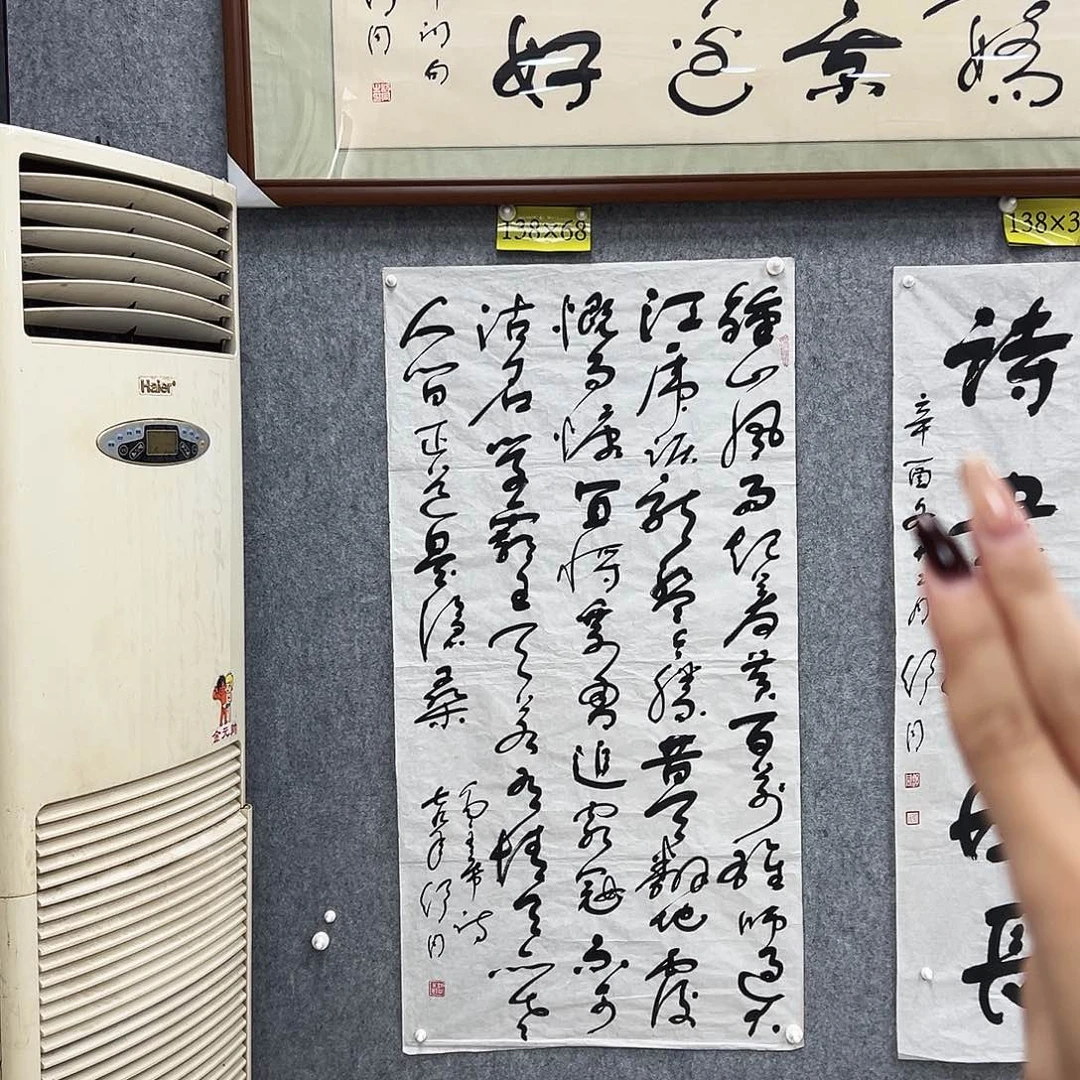 嬌
景
邊
好
詞句
同
138×68
138×3
鍾山風雨起蒼黄百萬雄師過大
江虎踞龍盤今勝昔天翻地覆
慨而慷宜將剩勇追窮寇不可
沽名學霸王天若有情天亦老
人間正道是滄桑
毛主席詩
舒同
詩
長
辛酉
月舒同
Haier